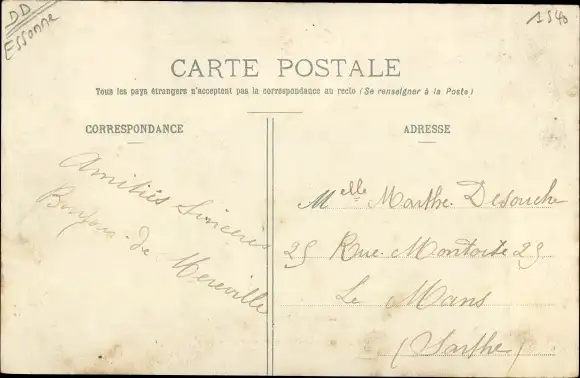 DD
Essonne
1540
CARTE POSTALE
Tous les pays étrangers n'acceptent pas la correspondance au recto (Se renseigner à la Poste)
CORRESPONDANCE
Amitiés Sincères
Bonjour de Mereville
ADRESSE
Melle Marthe Desouche
25 Rue Montoise 25
Le Mans
(Sarthe)